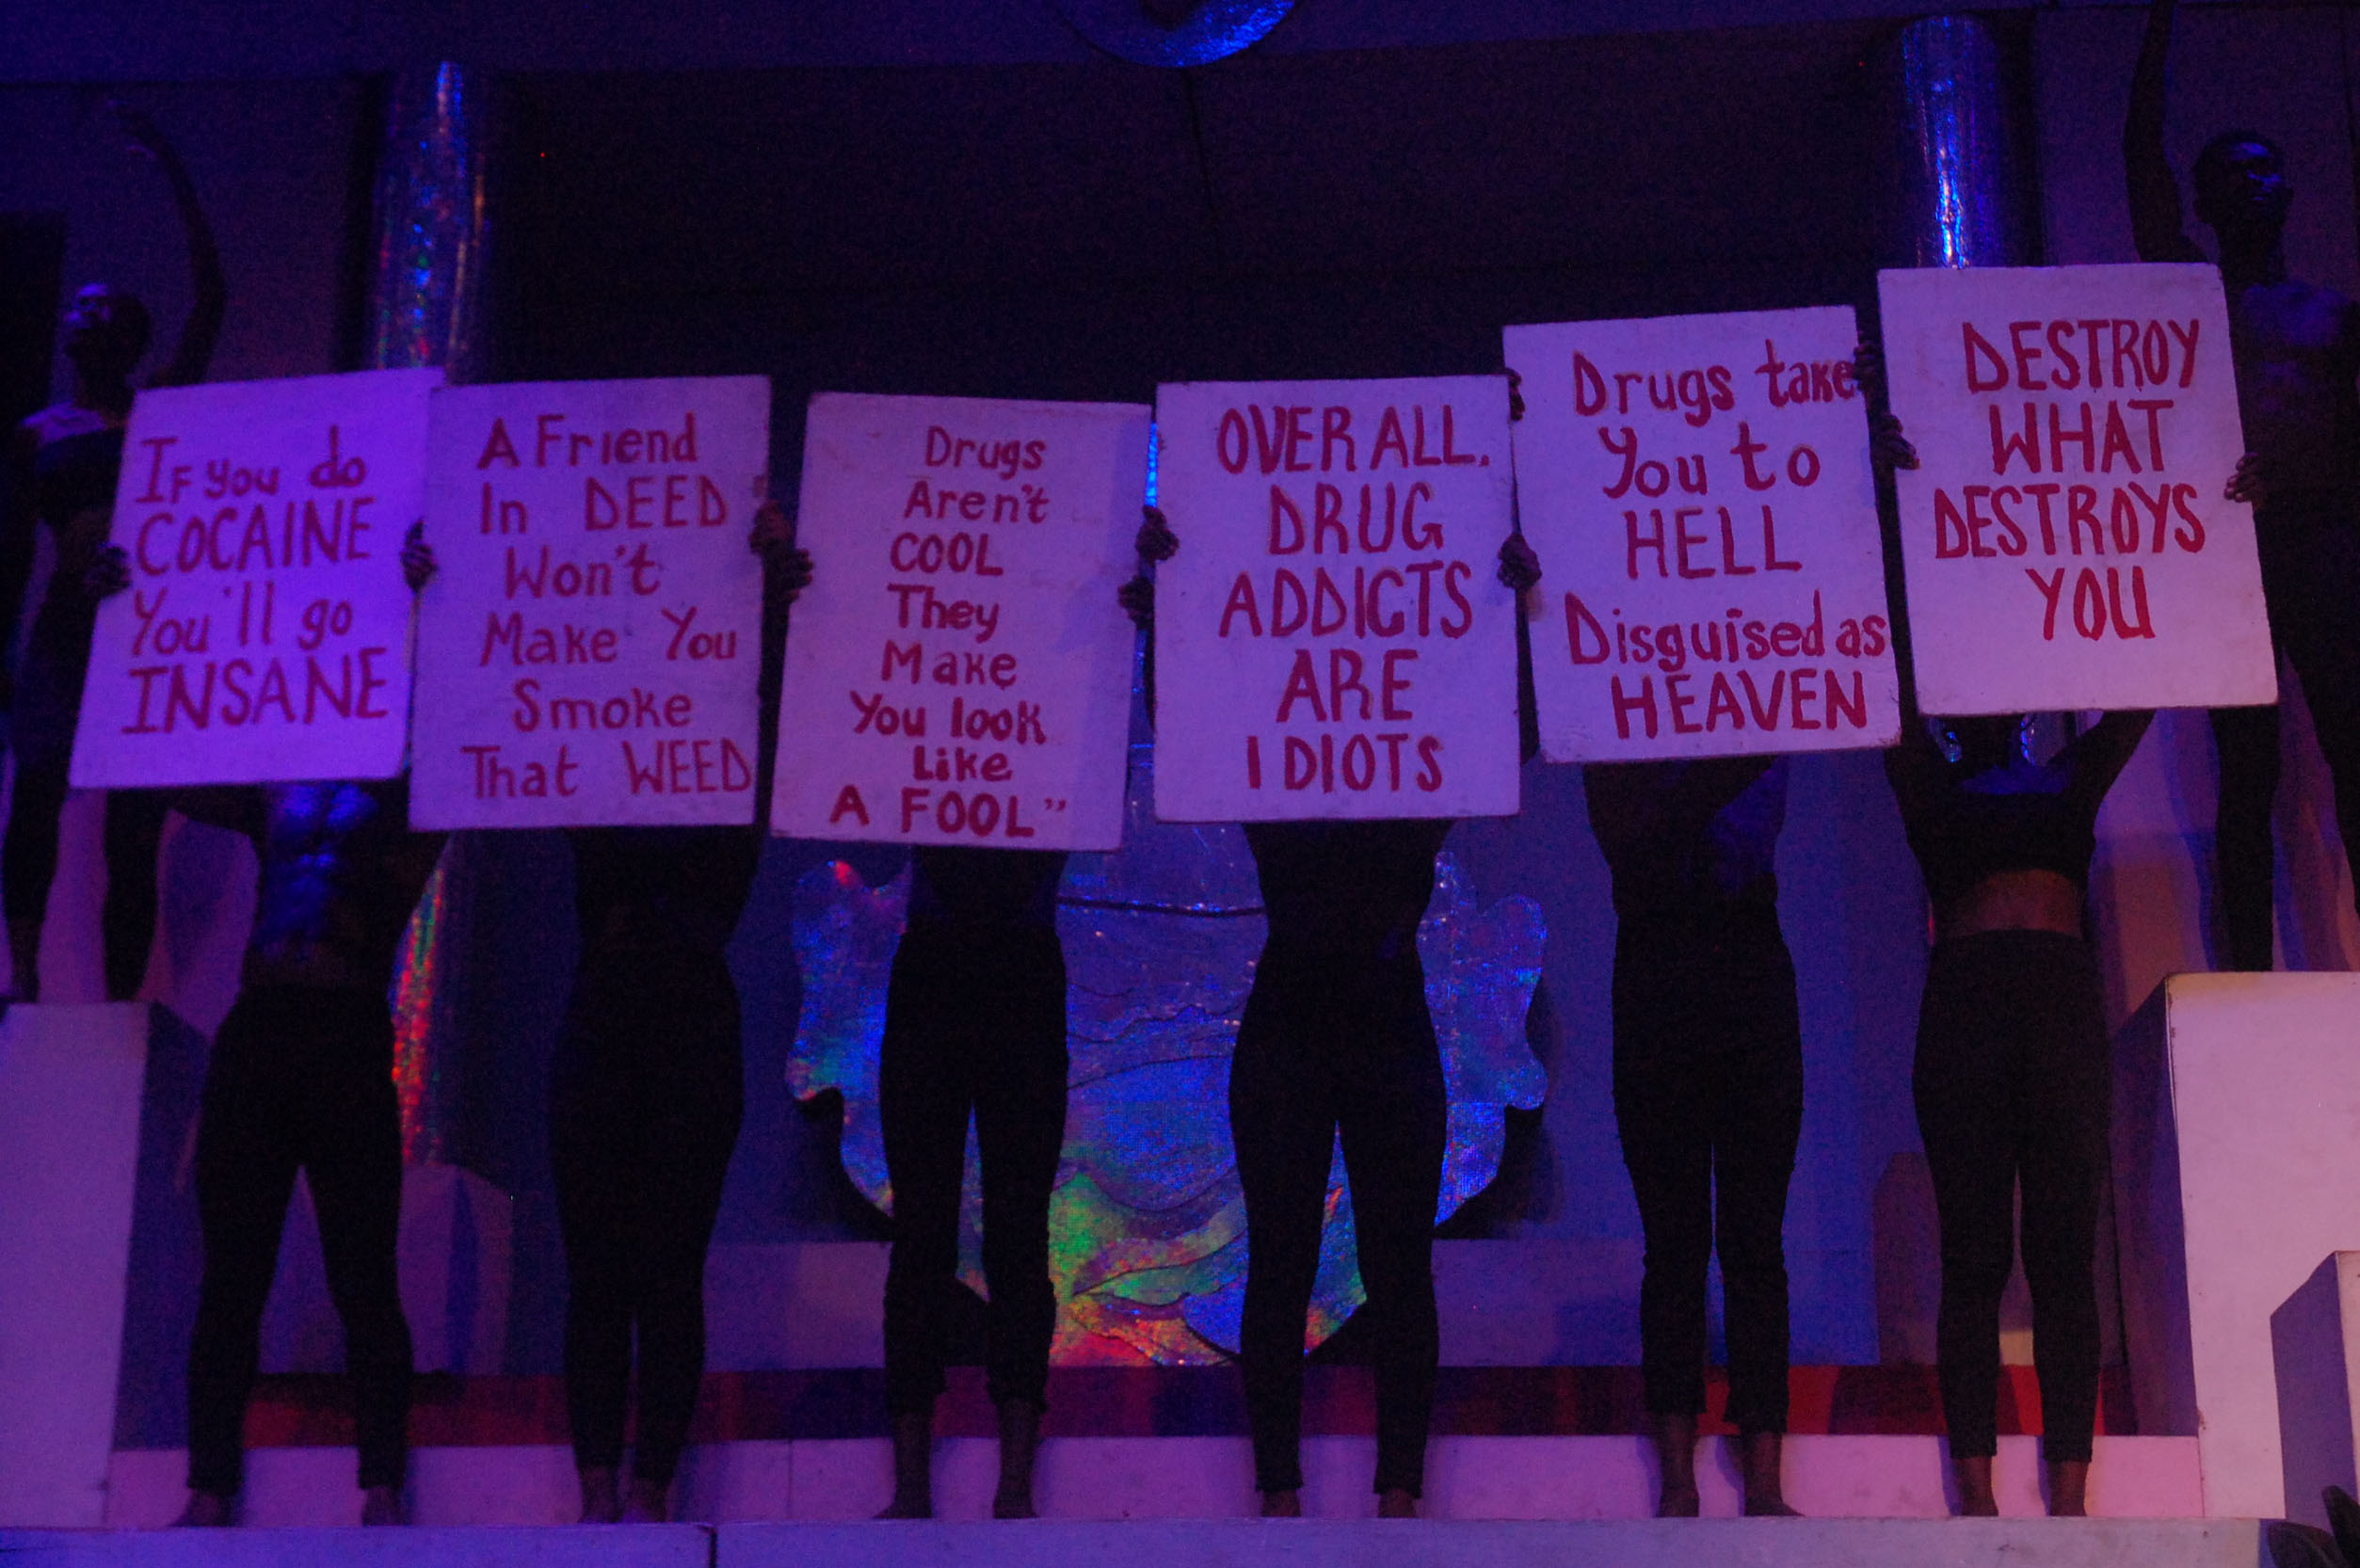 IF you do
COCAINE
You'll go
INSANE
A Friend
In DEED
Won't
Make You
Smoke
That WEED
Drugs
Aren't
COOL
They
Make
You look
Like
A FOOL”
OVER ALL.
DRUG
ADDICTS
ARE
IDIOTS
Drugs take
You to
HELL
Disguised as
HEAVEN
DESTROY
WHAT
DESTROYS
YOU